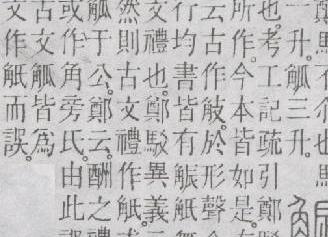 升觚三
也。考工記疏引鄭
所作。今本皆如是。
云古作䚦。於形聲
行均書皆有觗
文禮也。鄭駁異義
然則古文禮作觗。
觚于公。鄭云。酬之禮
或作角旁氏。由此
古觚皆為
文作觗而誤。